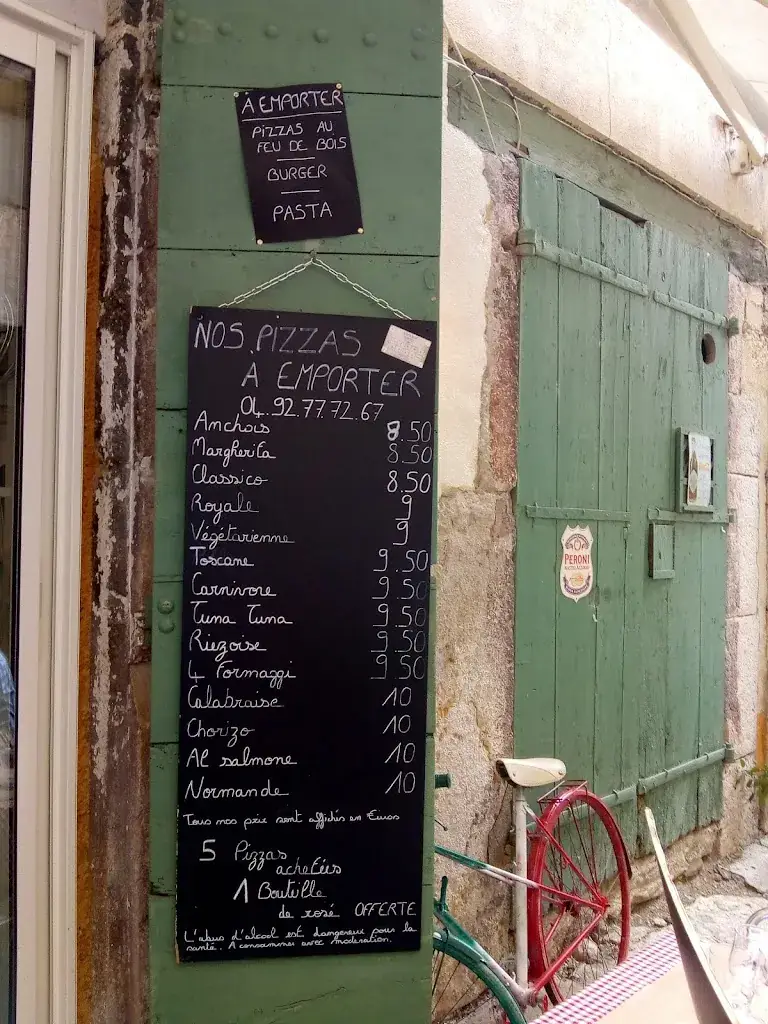 A EMPORTER
PIZZAS AU
FEU DE BOIS
BURGER
PASTA
NOS PIZZAS
A EMPORTER
04.92.77.72.67
Anchois 8.50
Margherita 8.50
Classico 8.50
Royale 9
Végétarienne 9
Toscane 9.50
Carnivore 9.50
Tuna Tuna 9.50
Riezoise 9.50
4 Formaggi 9.50
Calabraise 10
Chorizo 10
Al salmone 10
Normande 10
Tous nos prix sont affichés en Euros
5 Pizzas
achetées
1 Bouteille
de rosé OFFERTE
L'abus d'alcool est dangereux pour la
santé. A consommer avec modération.
PERONI